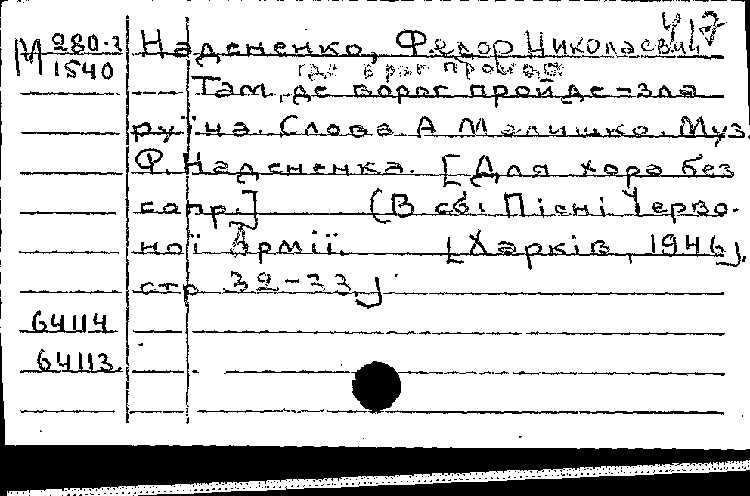 417
М 280-3
1540
Надененко, Федор Николаевич
где враг пройдет
Там, де ворог пройде - зла
руїна. Слова А Малишко. Муз.
Ф. Надененка. [Для хора без
сопр.] (В сб: Пісні Черво-
ної Армії. [Харків, 1946],
стр 32-33.)
64114
64113.